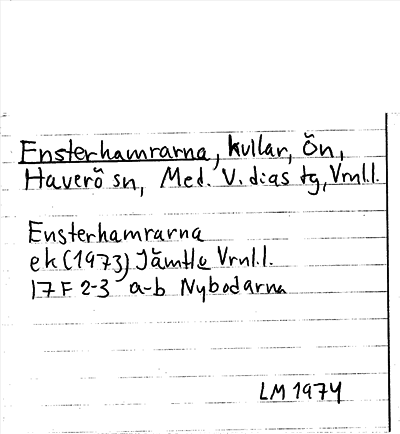 Ensterhamrarna, kullar, Ön,
Haverö sn, Med. V. dias tg, Vrnl.l.
Ensterhamrarna
ek (1973) Jämtle Vrnl.l.
17 F 2-3 a-b Nybodarna
LM 1974